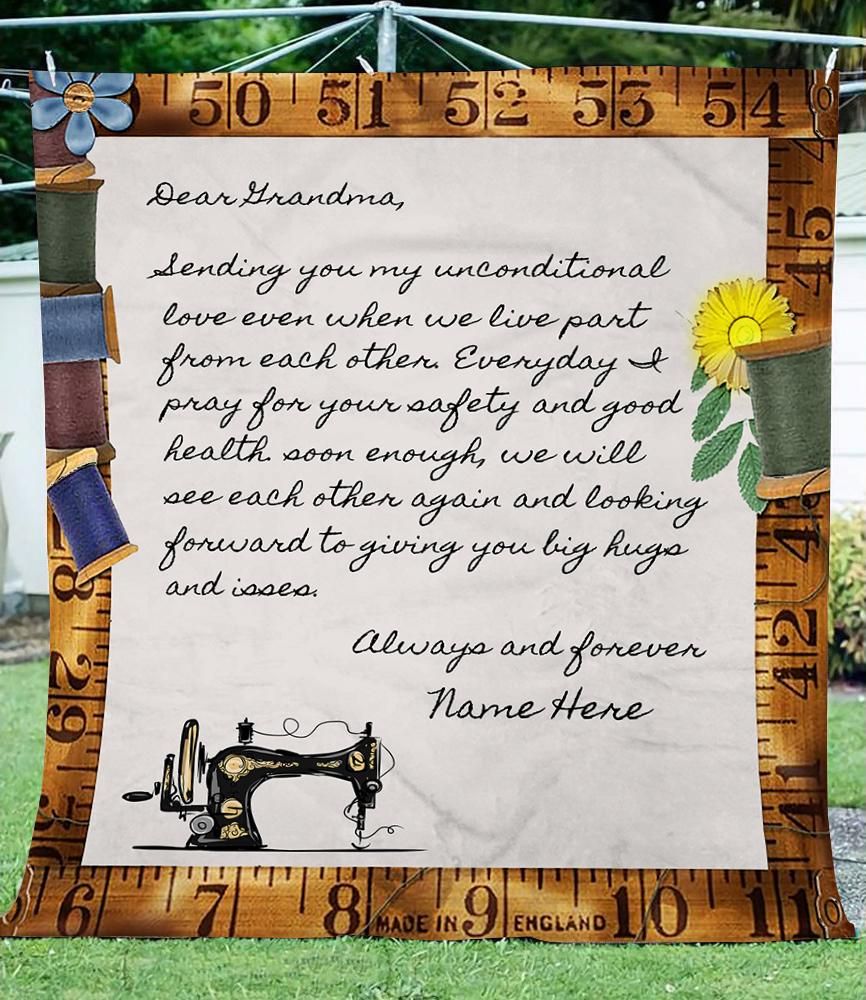 50 51 52 53 54
Dear Grandma,
Sending you my unconditional
love even when we live part
from each other. Everyday I
pray for your safety and good
health. soon enough, we will
see each other again and looking
forward to giving you big hugs
and isses.
Always and forever
Name Here
45
42
41
6 7 8 MADE IN 9 ENGLAND 10 11